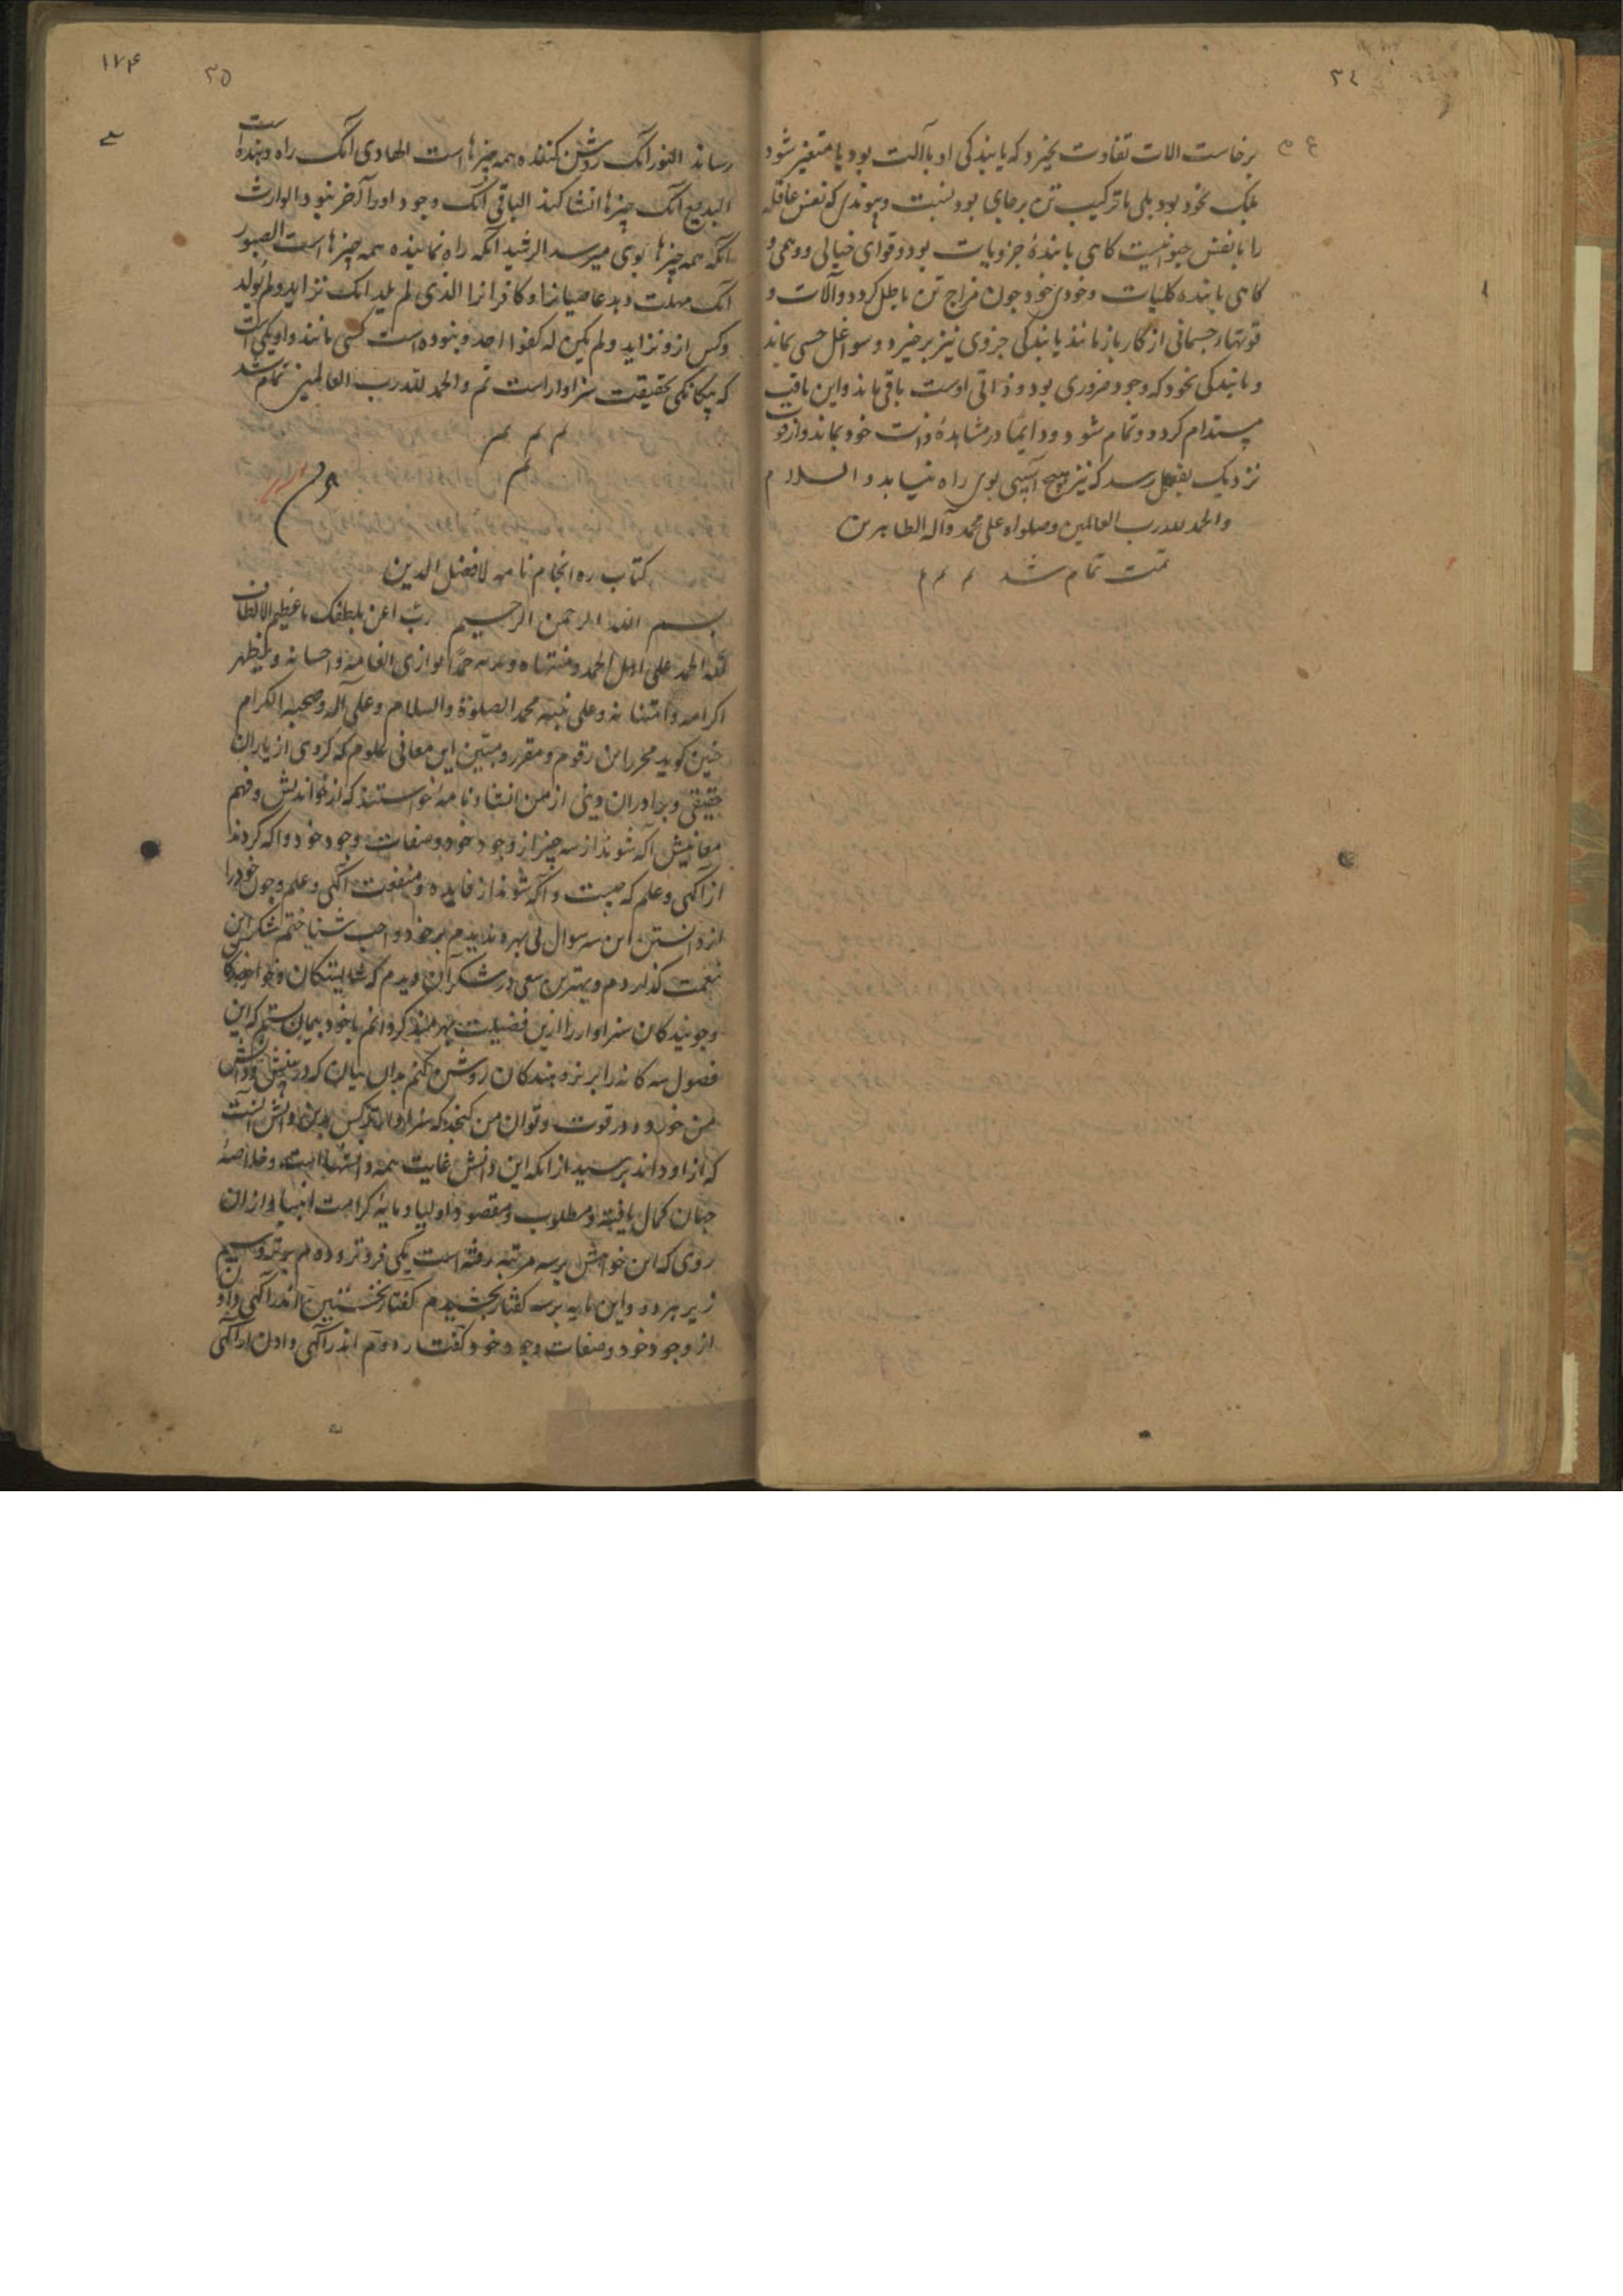 ۳٤
برخاست الات تفاوت نخیزد که یابندکی او باآلت بود یا متغیر شود
بلک بخود بود بلی تا ترکیب تن برجای بود نسبت و پیوندی که نفس عاقله
را با نفس حیوانیست کاهی یابندهٔ جزویات بود و قوای خیالی و وهمی و
کاهی یابنده کلیات و خودی خود چون مزاج تن باطل کردد و آلات و
قوتهاء جسمانی از کار باز مانند یابندکی جزوی نیز برخیزد و سواغل حسی نماند
و یابندکی بخود که وجود ضروری بود و ذاتی اوست باقی ماند و این یافت
مستدام کردد و تمام شود و دایما در مشاهدهٔ ذات خود بماند و از قوت
نزدیک بفعل رسد که نیز هیچ آسیبی بوی راه نیابد و السلام
والحمد لله رب العالمین و صلواه علی محمد وآله الطاهرین
تمت تمام شد م م م
۱۷۴
۳۵
رساند النور آنک روشن کننده همه چیزها است الهادی آنک راه دهنده است
البدیع آنک چیزها انشا کند الباقی آنک وجود او را آخر نبود الوارث
آنکه همه چیزها بوی میرسد الرشید آنکه راه نماینده همه چیزها است الصبور
آنک مهلت دهد عاصیانرا و کافرانرا الذی لم یلد آنک نزاید ولم یولد
و کس ازو نزاید ولم یکن له کفوا احد و نبوده است کسی مانند و او یکی است
که یکانکی بحقیقت سزاوار است تم والحمد لله رب العالمین تمام شد
م م م م
م
کتاب ره انجام نامه لافضل الدین
بسم الله الرحمن الرحیم رب اعن بلطفک یا عظیم الالطاف
لله الحمد علی اول الحمد و منتهاه و حمدا یوازی انعامه و احسانه و یظهر
اکرامه وامتنانه وعلی نبیه محمد الصلوة والسلام وعلی آله وصحبه الکرام
چنین کوید محرر این رقوم و مقرر و مبین این معانی علوم که کروهی از یاران
حقیقی و برادران دینی از من انشاء نامهٔ خواستند که از خواندنش و فهم
معانیش آکه شوند از سه چیز از وجود خود و صفات وجود خود و آکه کردند
از آکهی و علم که چیست و آکه شوند از فایده و منفعت آکهی و علم و چون خود را
از دانستن این سه سوال بی بهره ندیدم بر خود واجب شناختم شکر این
نعمت کذاردم و بهترین سعی در شکر آن دیدم که شایستکان و خواهندکان
و جویندکان سزاوار را ازین فضیلت بهره‌مند کردانم با خود پیمان بستم که این
فصول سه کانه را بر پژوهندکان روشن کنم بدان بیان که در بینش و دانش
من خورد و در قوت و توان من کنجد که سزاوارتر کس بدین دانش آنست
که از او داند پرسید از آنکه این دانش غایت همه دانشها است و خلاصهٔ
جهان کمال یافته و مطلوب و مقصود اولیا و مایهٔ کرامت انبیا و از آن
روی که این خواهش بر سه مرتبه رفته است یکی فروتر و دوم برتر و سیم
زبر هر دو و این نامه بر سه کفتار بخشیدم کفتار نخستین اندر آکهی دادن
از وجود خود و صفات وجود خود کفتار دوم اندر آکهی دادن از آکهی